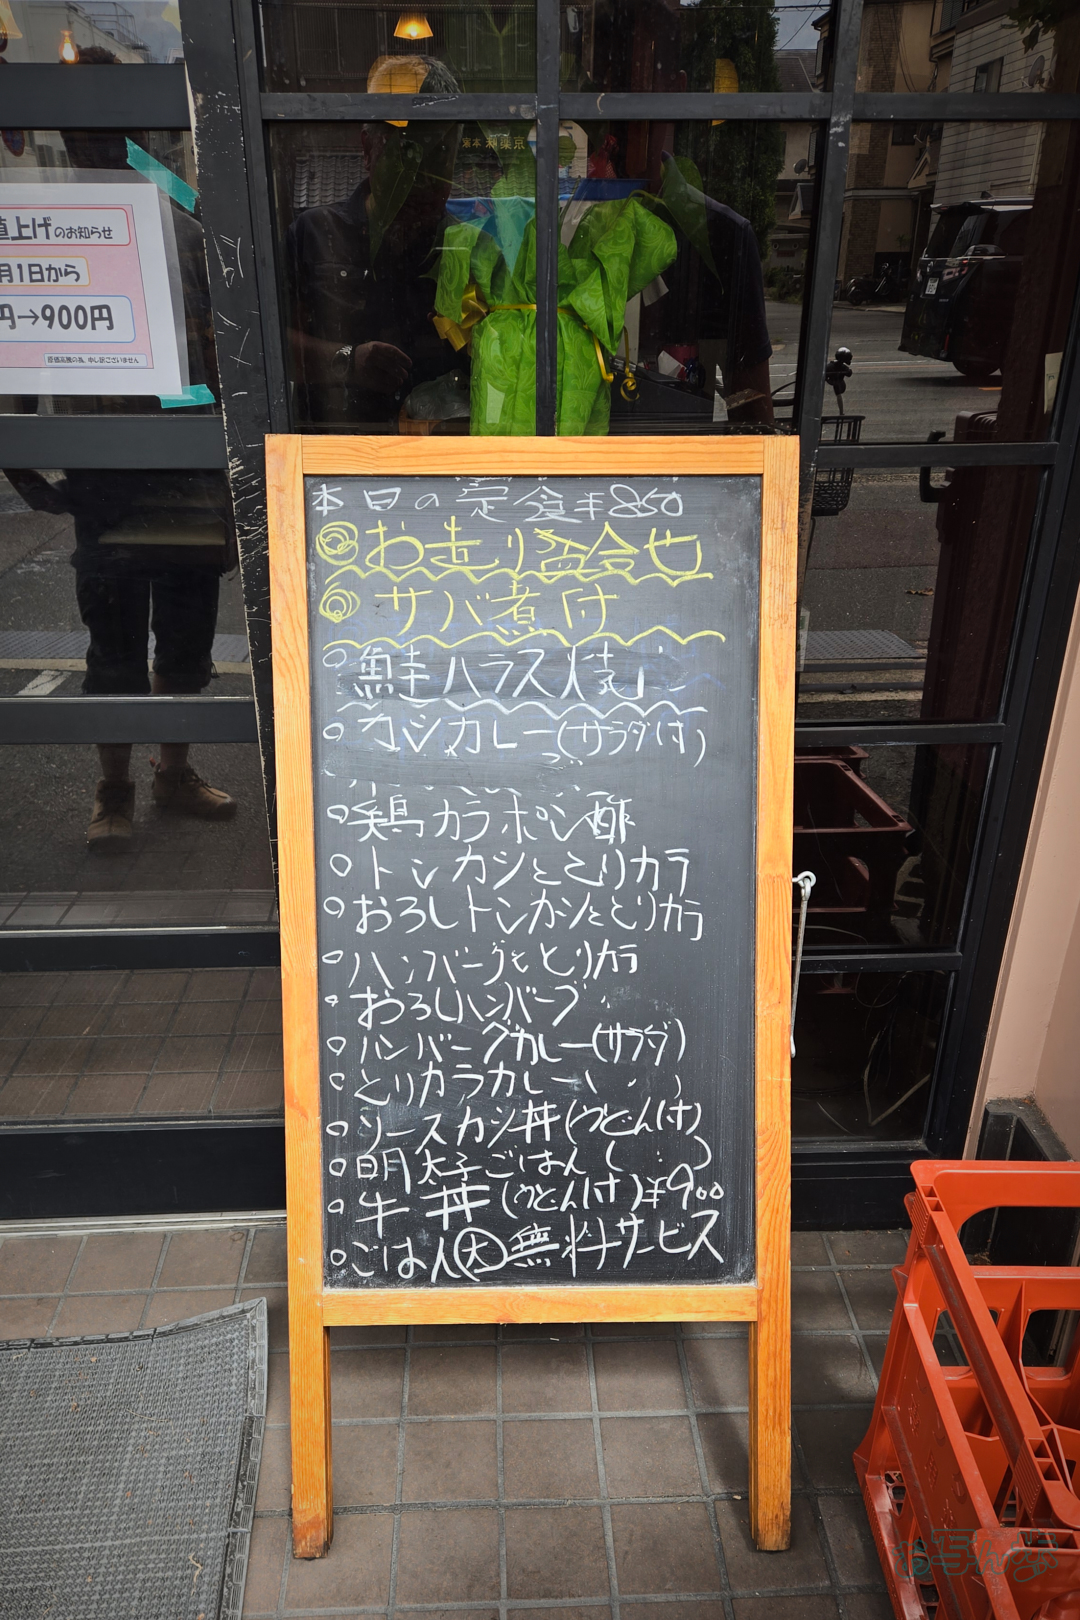 京樂祇 本家
値上げのお知らせ
月1日から
円→900円
原価高騰の為、申し訳ございません
本日の定食¥850
◎お造り盛合せ
◎サバ煮付
○鮭ハラス焼
○カツカレー(サラダ付)
○鶏カラポン酢
○トンカツととりカラ
○おろしトンカツととりカラ
○ハンバーグととりカラ
○おろしハンバーグ
○ハンバーグカレー(サラダ)
○とりカラカレー( 〃 )
○ソースカツ丼(うどん付)
○明太子ごはん( 〃 )
○牛丼(うどん付)¥900
○ごはん大無料サービス
お写ん歩